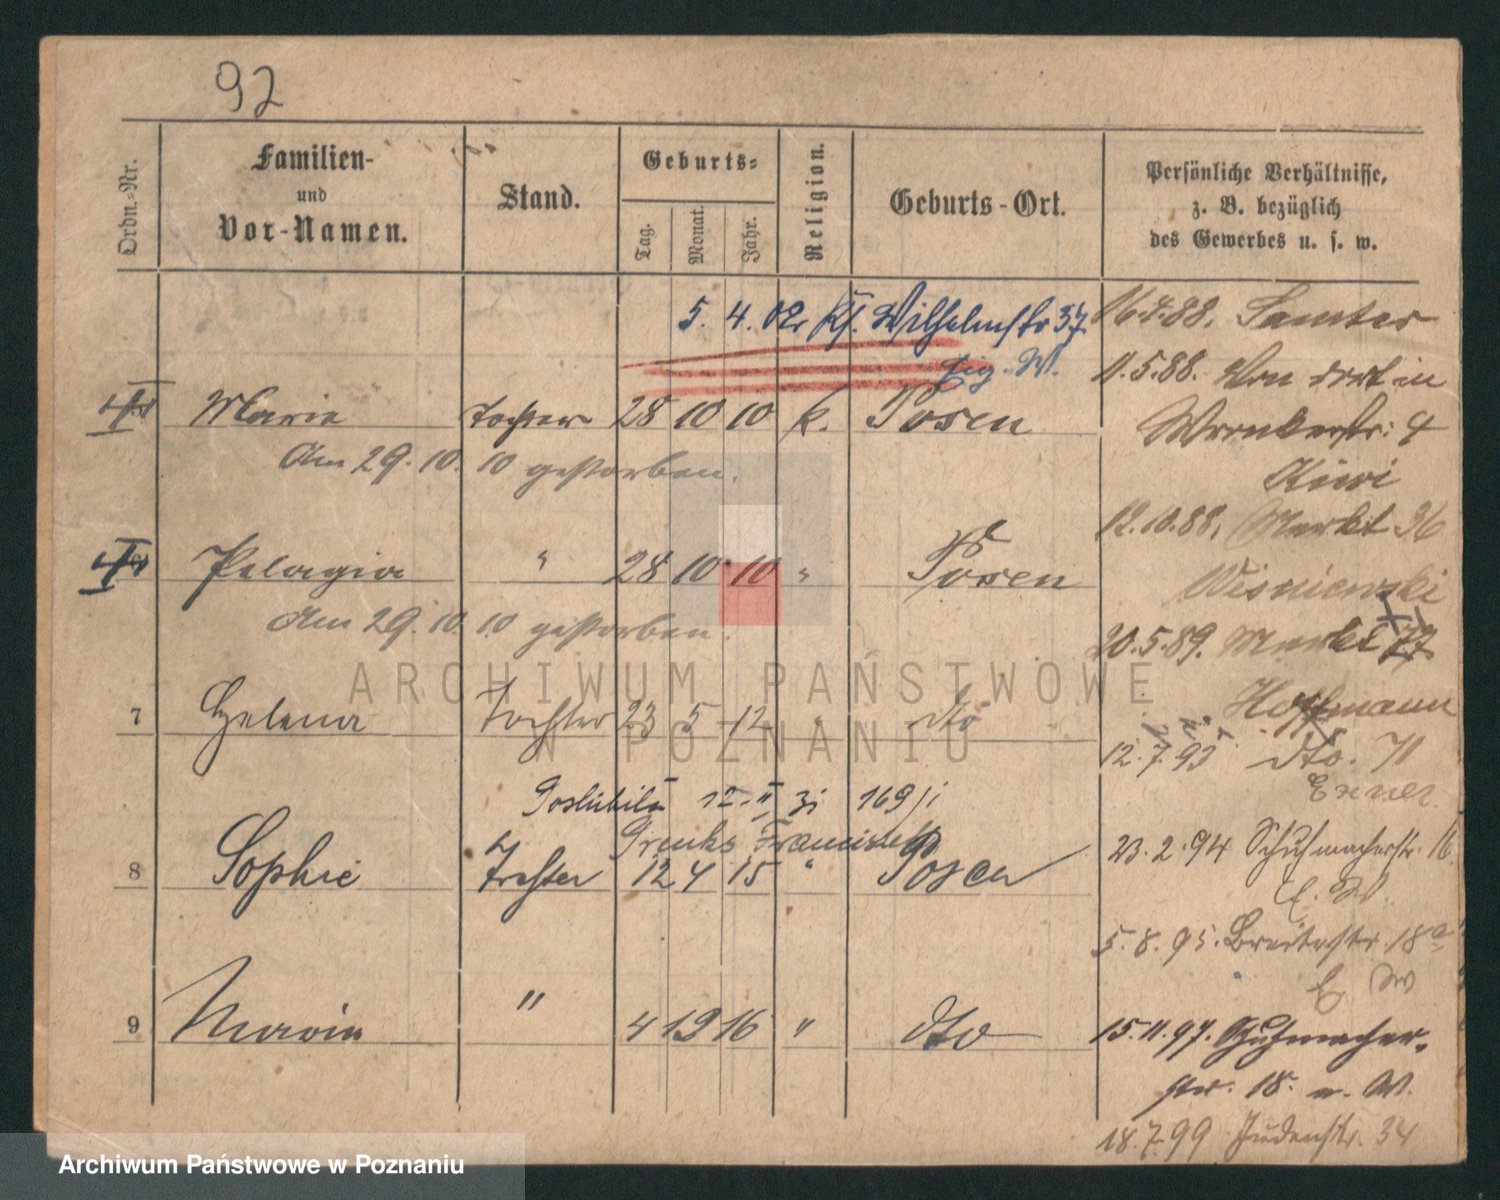 92
Ordn.-Nr.
Familien-
und
Vor-Namen.
Stand.
Geburts-
Tag.
Monat.
Jahr.
Religion.
Geburts-Ort.
Persönliche Verhältnisse,
z. B. bezüglich
des Gewerbes u. s. w.
5. 4. 02 Wilhelmstr 37
Marie Tochter 28 10 10 k. Posen
Am 29. 10. 10 gestorben.
Pelagia " 28 10 10 " Posen
Am 29. 10. 10 gestorben.
7 Helena Tochter 23 5 12 " dto
12. II 31 169
8 Sophie Tochter 12 4 15 " Posen
9 " 4 12 16 " dto
16.4.88. Samter
11.5.88. Von dort in
Wronkerstr: 4
12.10.88. Markt 36
Wisniewski
20.5.89. Markt 77
Hoffmann
12.7.93 dto. 71
Exner
23.2.94 Schuhmacherstr. 16
E. W.
5.8.95. Breitestr. 18a
E W
15.11.97. Schuhmacher-
str. 18. W.
18.7.99 Judenstr. 34
ARCHIWUM PAŃSTWOWE
W POZNANIU
Archiwum Państwowe w Poznaniu